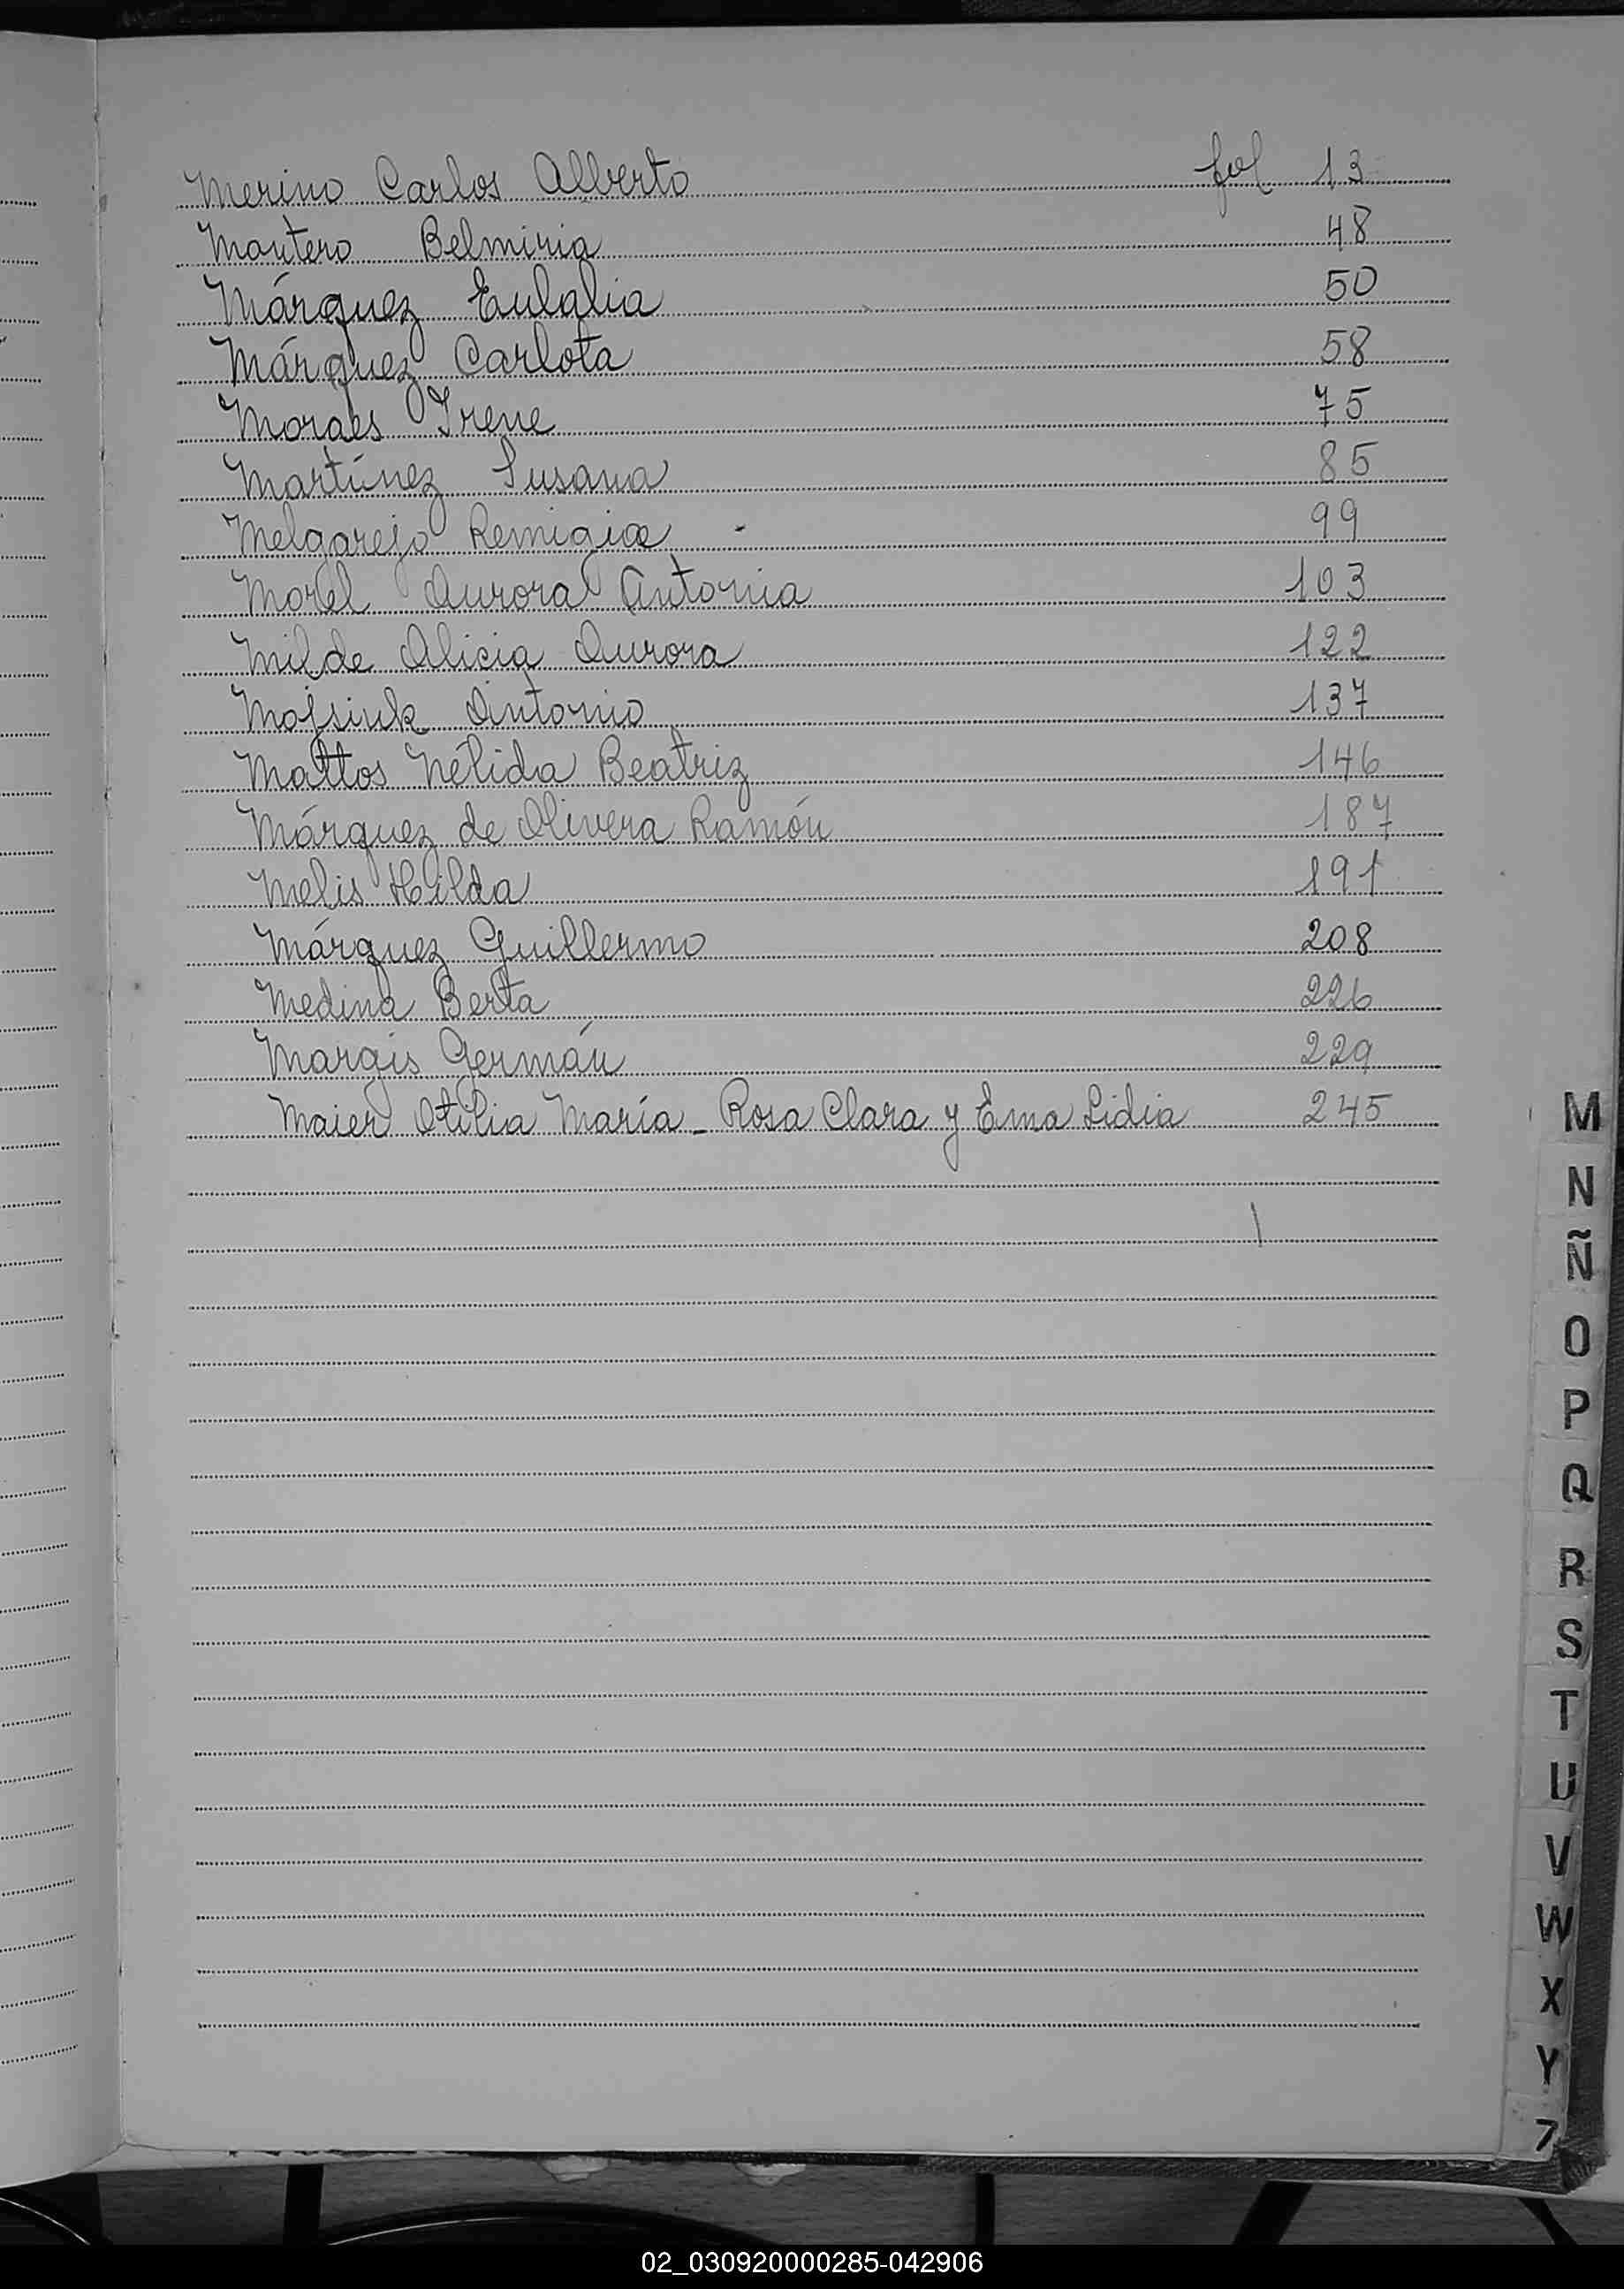 Merino Carlos Alberto fol 13
Montero Belmiria 48
Márquez Eulalia 50
Márquez Carlota 58
Moraes Irene 75
Martínez Susana 85
Melgarejo Remigia 99
Morel Aurora Antonia 103
Milde Alicia Aurora 122
Antonio 137
Mattos Nélida Beatriz 146
Márquez de Olivera Ramón 187
Melis Hilda 191
Márquez Guillermo 208
Medina Berta 226
Margis Germán 229
Maier Otilia María - Rosa Clara y Ema Lidia 245
M
N
Ñ
O
P
Q
R
S
T
U
V
W
X
Y
02_030920000285-042906